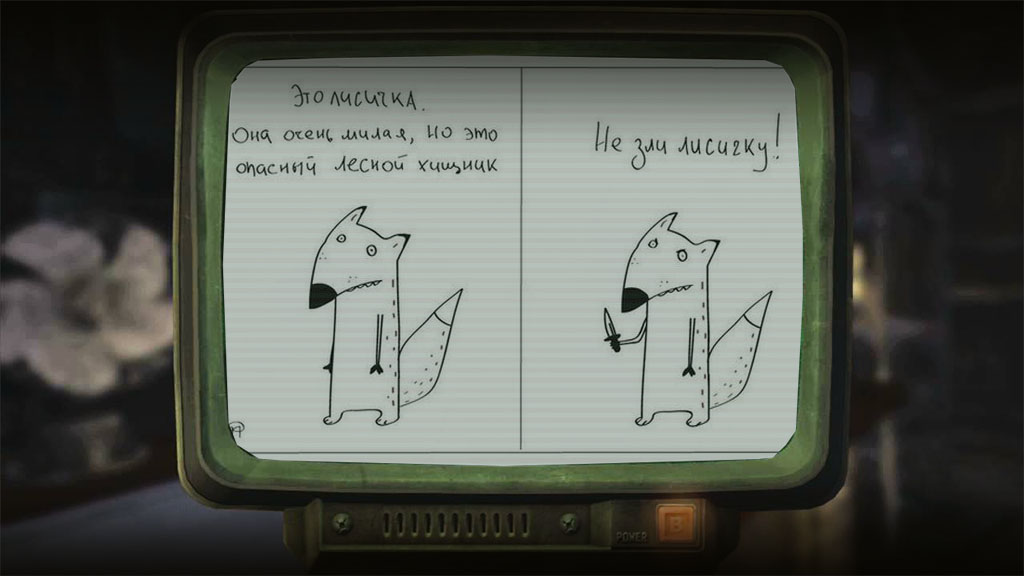 Это лисичка.
Она очень милая, но это
опасный лесной хищник
Не зли лисичку!
POWER
B